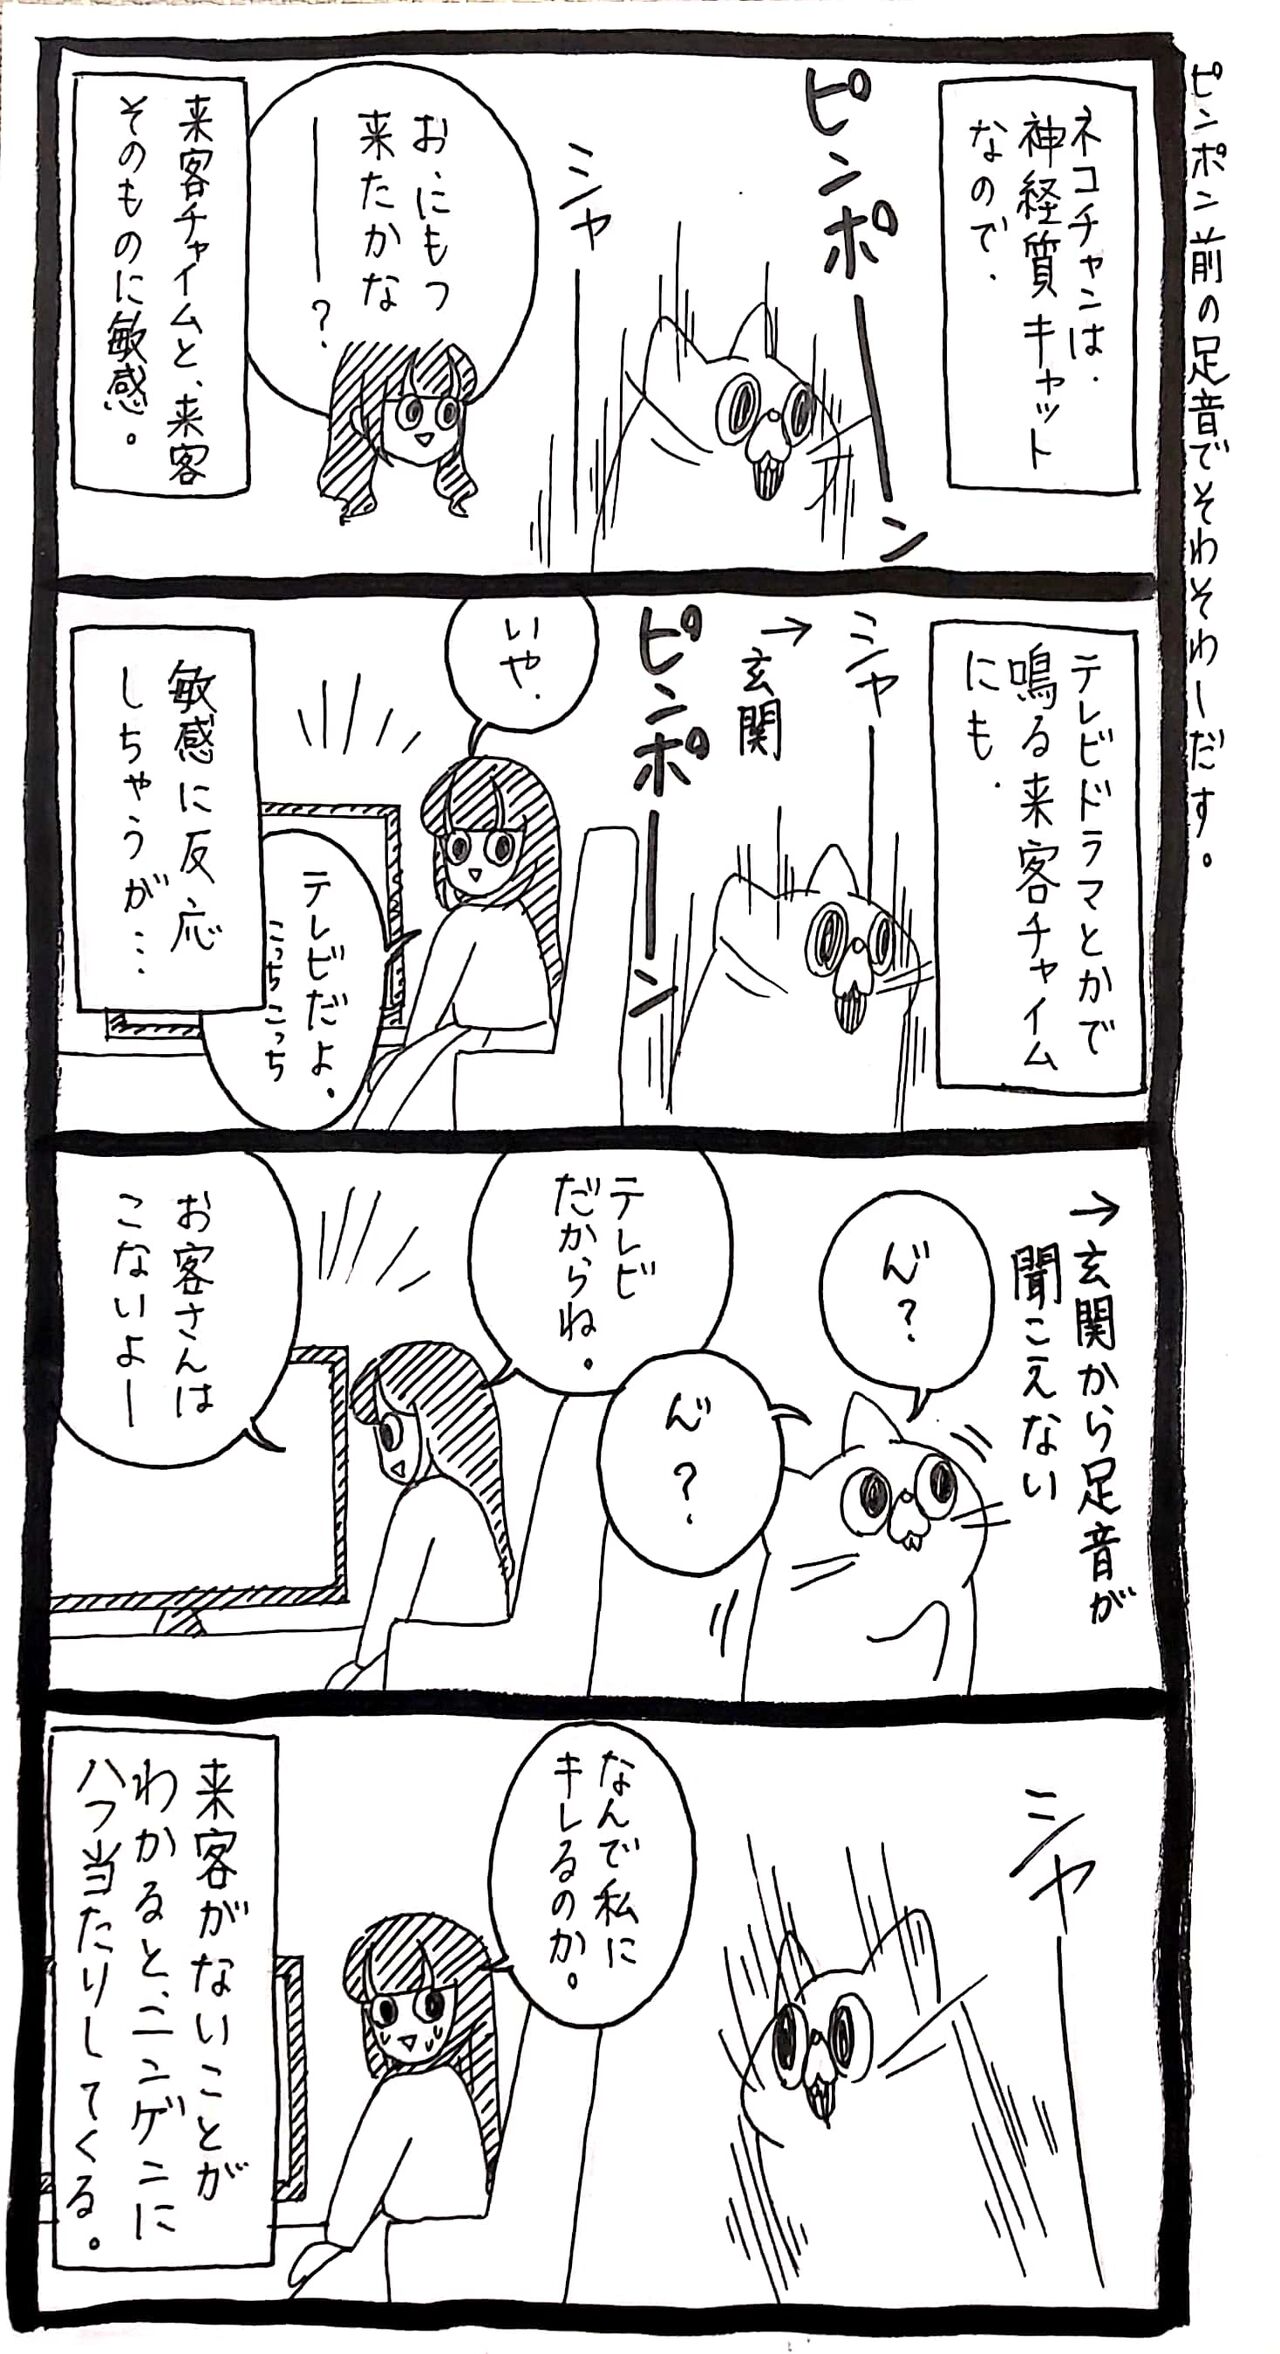 ピンポン前の足音でそわそわーだす。
ネコチャンは.
神経質キャット
なので.
ピンポーン
シャー
お、にもつ
来たかな
ー?
来客チャイムと、来客
そのものに敏感。
テレビドラマとかで
鳴る来客チャイム
にも.
シャー
→
玄関
ピンポーン
いや.
テレビだよ.
こっちこっち
敏感に反応
しちゃうが…
→玄関から足音が
聞こえない
ん?
ん?
テレビ
だからね。
お客さんは
こないよー
シャー
なんで私に
キレるのか。
来客がないことが
わかると、ニンゲンに
ハつ当たりしてくる。